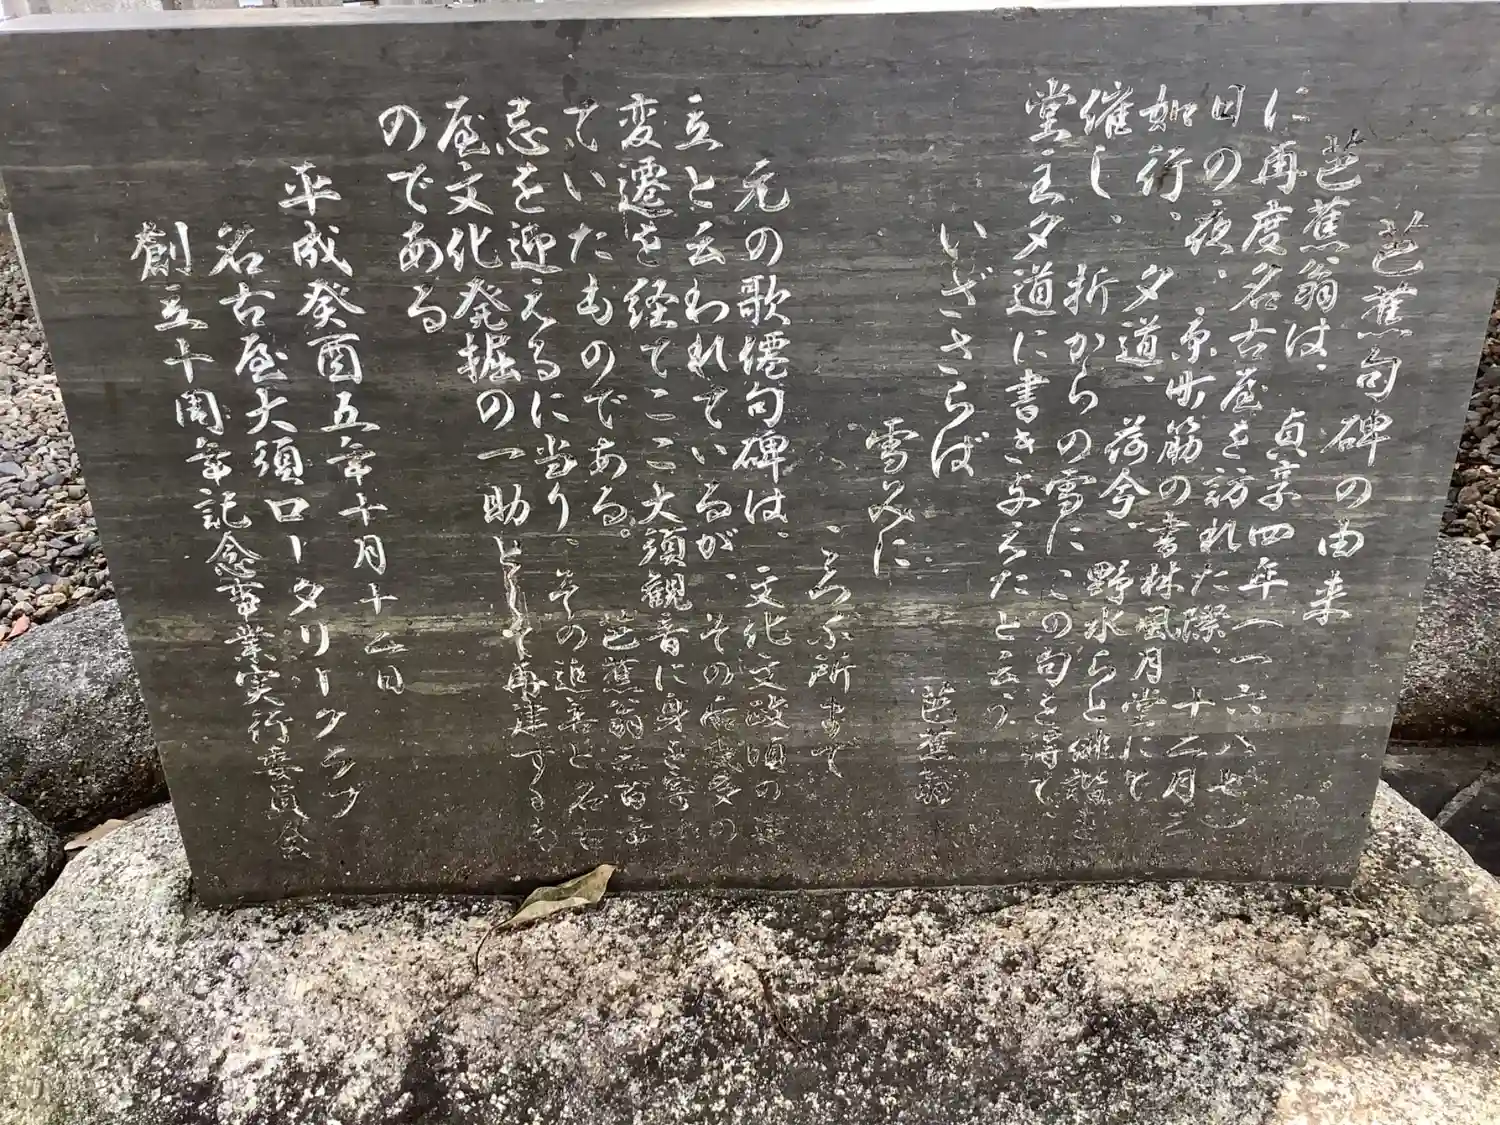 芭蕉句碑の由来
芭蕉翁は、貞享四年(一六八七)
に再度名古屋を訪れた際、十二月三
日の夜、京町筋の書林風月堂にて
如行、夕道、荷兮、野水らと俳諧を
催し、折からの雪にこの句を得て、
堂主夕道に書き与えたと云う
いざさらば
雪見に
芭蕉翁
ころぶ所まで
元の歌僊句碑は、文化文政頃の建
立と云われているが、その后幾多の
変遷を経てここ大須観音に身を寄
ていたものである。芭蕉翁三百年
忌を迎えるに当り、その追善と名古
屋文化発掘の一助として再建するも
のである
平成癸酉五年十月十二日
名古屋大須ロータリークラブ
創立十周年記念事業実行委員会